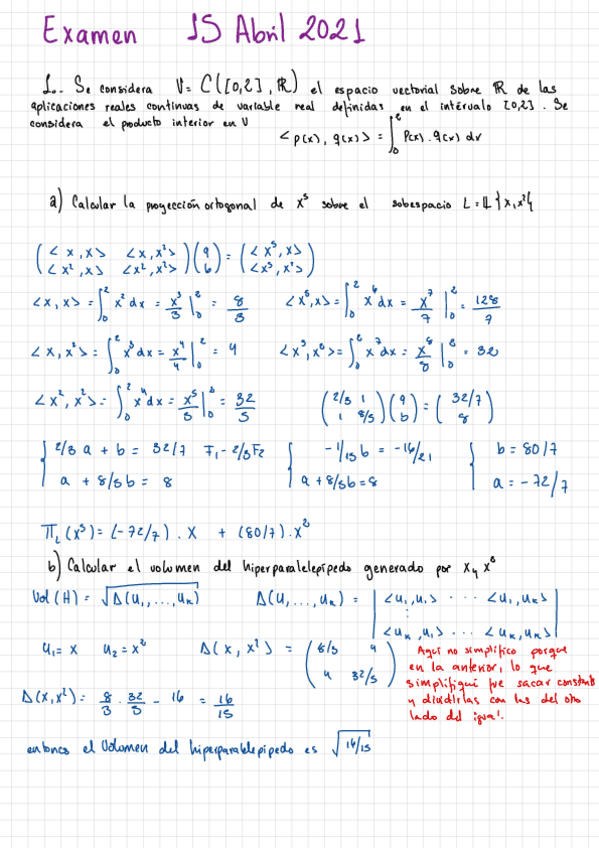 Examen 15 Abril 2021
1.- Se considera V = C([0,2], ℝ) el espacio vectorial sobre ℝ de las
aplicaciones reales continuas de variable real definidas en el intérvalo [0,2]. Se
considera el producto interior en V
<p(x), q(x)> = ∫₀² p(x)·q(x) dx
a) Calcular la proyección ortogonal de x⁵ sobre el subespacio L = L{x,x²}
(<x,x> <x,x²> / <x²,x> <x²,x²>)(a / b) = (<x⁵,x> / <x⁵,x²>)
<x,x> = ∫₀² x² dx = x³/3 |₀² = 8/3 <x⁵,x> = ∫₀² x⁶ dx = x⁷/7 |₀² = 128/7
<x,x²> = ∫₀² x³ dx = x⁴/4 |₀² = 4 <x⁵,x²> = ∫₀² x⁷ dx = x⁸/8 |₀² = 32
<x²,x²> = ∫₀² x⁴ dx = x⁵/5 |₀² = 32/5 (2/3 1 / 1 8/5)(a / b) = (32/7 / 8)
{ 2/3 a + b = 32/7 F₁ - 2/3 F₂ { -1/15 b = -16/21 { b = 80/7
a + 8/5 b = 8 a + 8/5 b = 8 a = -72/7
Π_L (x⁵) = (-72/7) · x + (80/7) · x²
b) Calcular el volumen del hiperparalelepípedo generado por x y x²
Vol (H) = √Δ(u₁,...,uₖ) Δ(u₁,...,uₖ) = |<u₁,u₁> ··· <u₁,uₖ> / ⋮ / <uₖ,u₁> ··· <uₖ,uₖ>|
u₁ = x u₂ = x² Δ(x, x²) = (8/3 4 / 4 32/5)
Aquí no simplifico porque
en la anterior, lo que
simplifiqué fue sacar constante
y dividirlas con las del otro
lado del igual.
Δ(x,x²) = 8/3 · 32/5 - 16 = 16/15
entonces el Volumen del hiperparalelepipedo es √16/15